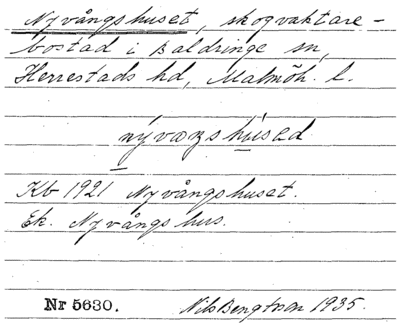 Nyvångshuset, skogvaktare-
bostad i Baldringe sn,
Herrestads hd, Malmöh. l.
Kb 1921 Nyvångshuset.
Ek. Nyvångshus.
Nr 5630. Nils Bengtsson 1935.